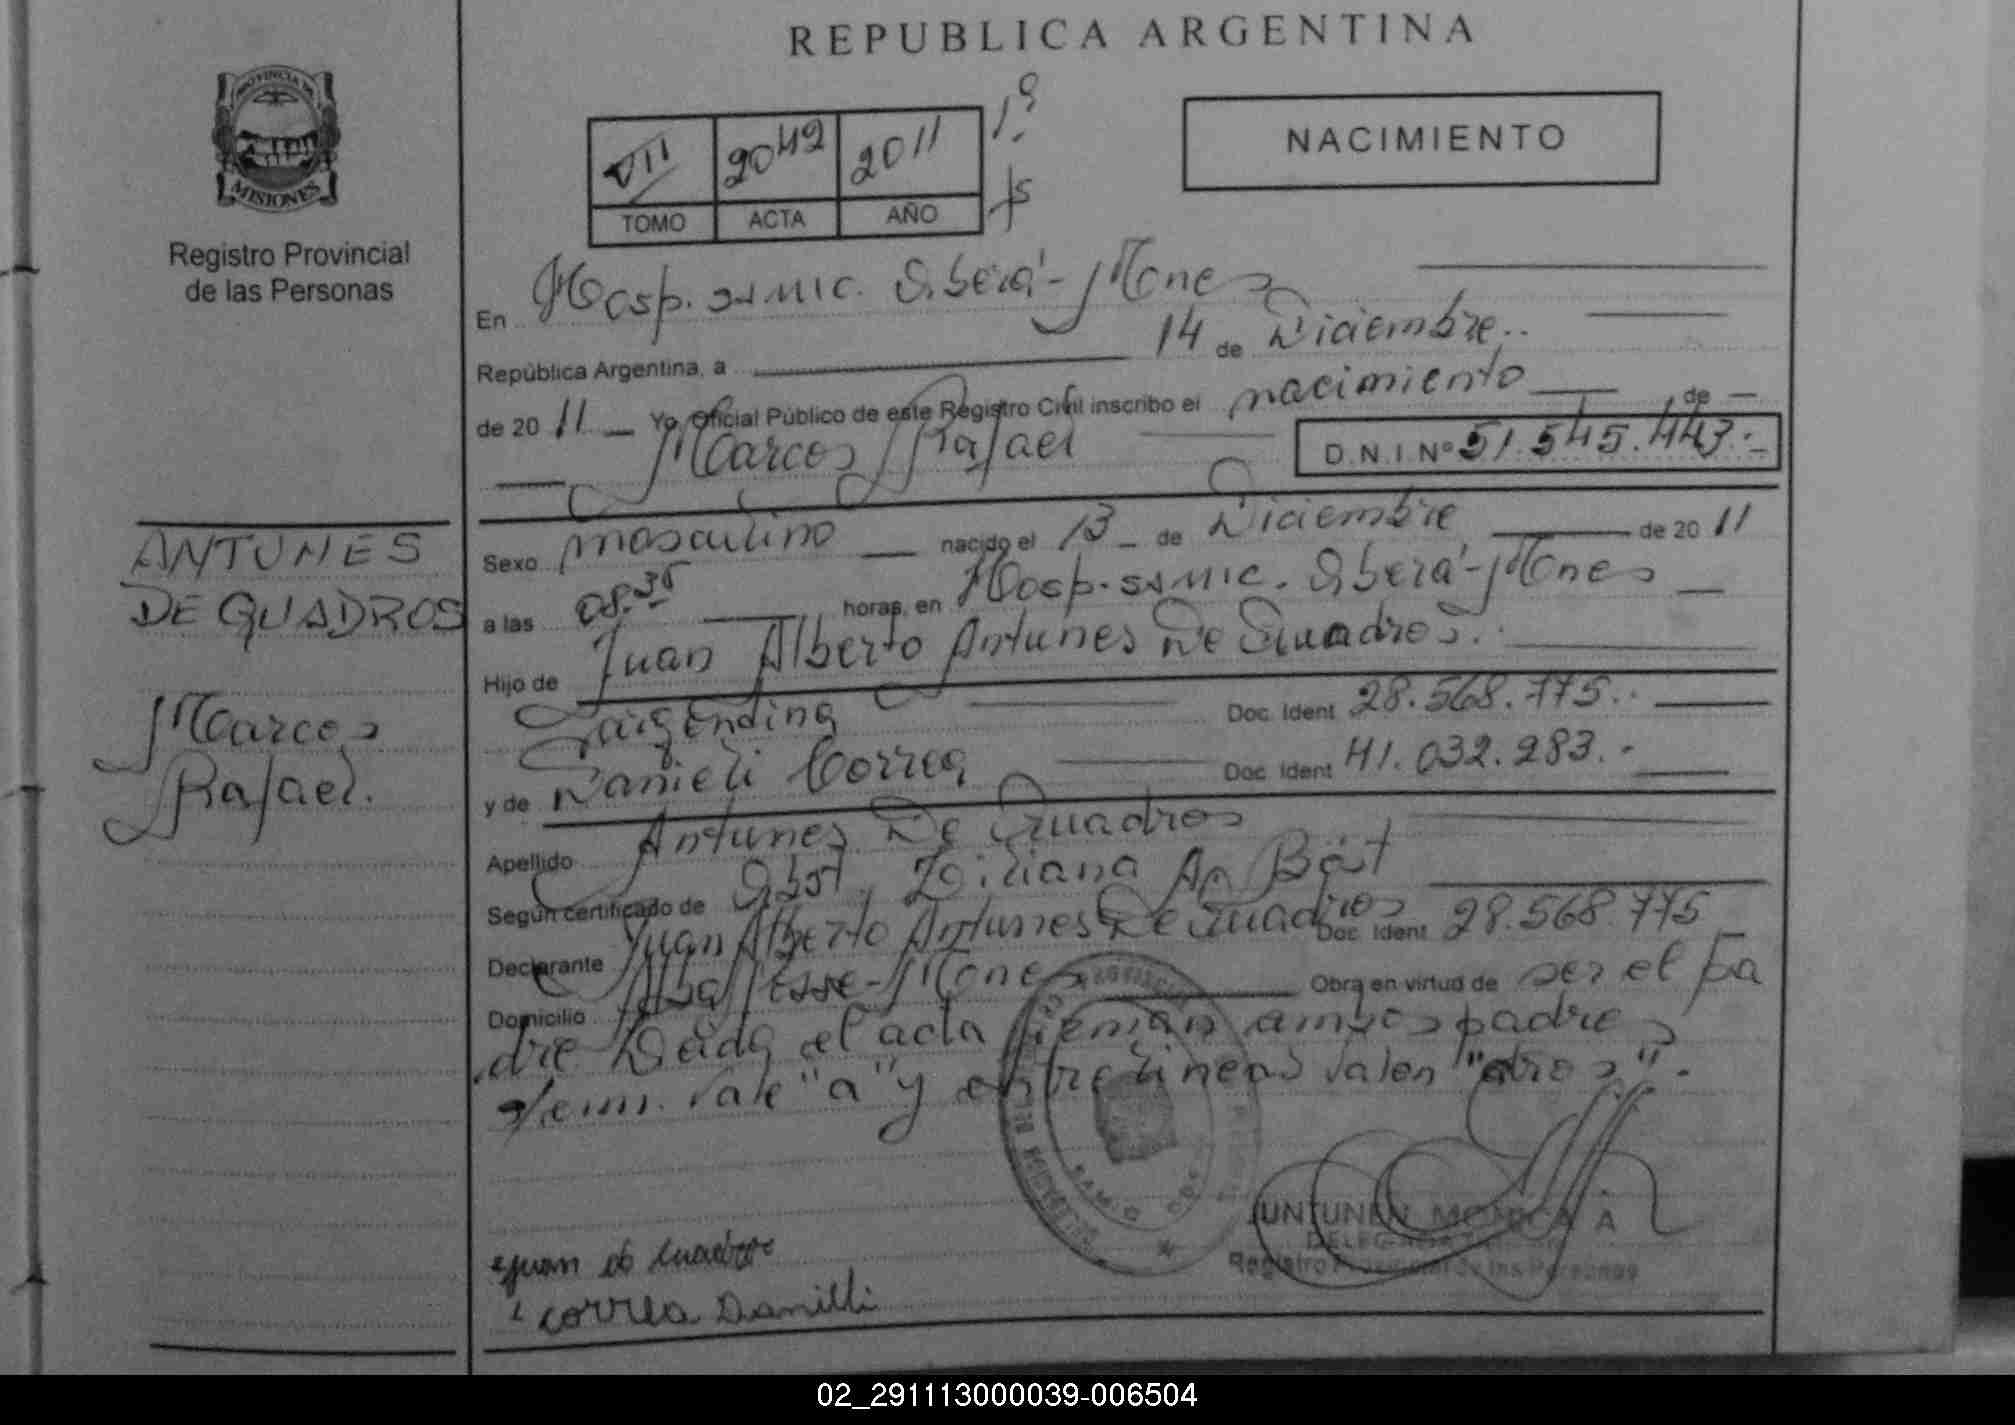 REPUBLICA ARGENTINA
PROVINCIA DE
MISIONES
Registro Provincial
de las Personas
VII 2042 2011 1º
TOMO ACTA AÑO
NACIMIENTO
En Hosp. SAMIC. Oberá-Mnes
República Argentina, a 14 de Diciembre..
de 20 11 Yo, Oficial Público de este Registro Civil inscribo el nacimiento de
Marcos Rafael
D.N.I.Nº 51.545.443.-
ANTUNES
DE QUADROS
Marcos
Rafael.
Sexo masculino nacido el 13 de Diciembre de 20 11
a las 08.35 horas, en Hosp. SAMIC. Oberá-Mnes
Hijo de Juan Alberto Antunes De Quadros.
argentina Doc. Ident 28.568.775.
y de Danieli Correa Doc. Ident 41.032.283.-
Apellido Antunes De Quadros
Según certificado de Obst. Liliana
Declarante Juan Alberto Antunes De Quadros Doc. Ident 28.568.775
Domicilio Alba Posse-Mnes Obra en virtud de ser el pa
dre Leida el acta firman ambos padres
enm. vale "a" y entre lineas valen "dros".
JUNTUNEN MONICA A
DELEGADA
Registro Provincial de las Personas
Juan de Cuadros
Correa Danilli
02_291113000039-006504